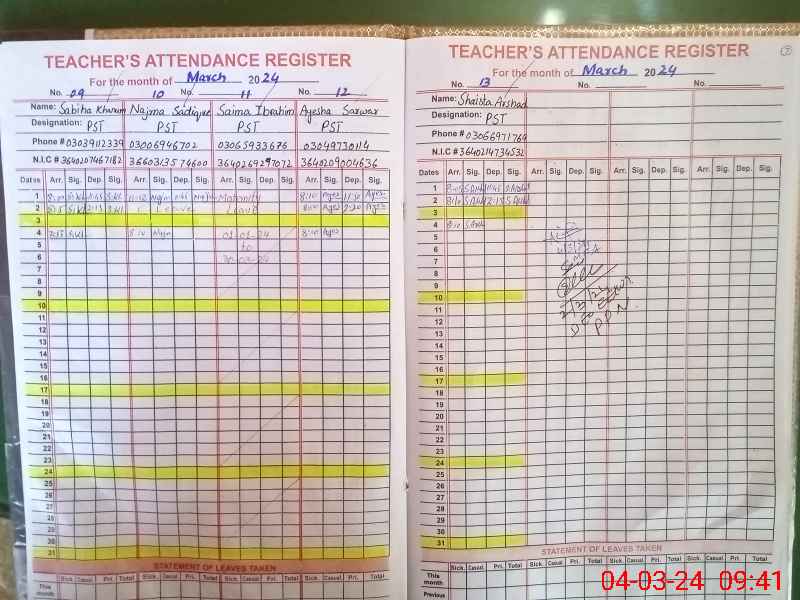 TEACHER'S ATTENDANCE REGISTER
For the month of March 2024
No. 09 10 No. 11 No. 12
Name: Sabiha Khanum Najma Sadique Saima Ibrahim Ayesha Sarwar
Designation: PST PST PST PST
Phone # 03039112339 03006946702 03065933676 03049730114
N.I.C # 3640207467182 3660313574600 3640269297072 3640209004636
Dates Arr. Sig. Dep. Sig. Arr. Sig. Dep. Sig. Arr. Sig. Dep. Sig. Arr. Sig. Dep. Sig.
1 Maternity 8:10
2 Leave Leave 8:10
3
4 8:10 01-01-24
5 to
6
7
8
9
10
11
12
13
14
15
16
17
18
19
20
21
22
23
24
25
26
27
28
29
30
31
STATEMENT OF LEAVES TAKEN
Sick. Casual Pri. Total Sick. Casual Pri. Total Sick. Casual Pri. Total Sick. Casual Pri. Total
This month
TEACHER'S ATTENDANCE REGISTER
For the month of March 2024
No. 13 No. No.
Name: Shaista Arshad
Designation: PST
Phone # 03066971769
N.I.C # 3640214734532
Dates Arr. Sig. Dep. Sig. Arr. Sig. Dep. Sig. Arr. Sig. Dep. Sig. Arr. Sig. Dep. Sig.
1
2 8:10
3
4 8:10
5
6
7
8
9
10
11
12
13
14
15
16
17
18
19
20
21
22
23
24
25
26
27
28
29
30
31
STATEMENT OF LEAVES TAKEN
Sick. Casual Pri. Total Sick. Casual Pri. Total Sick. Casual Pri. Total Sick. Casual Pri. Total
This month
Previous
04-03-24 09:41